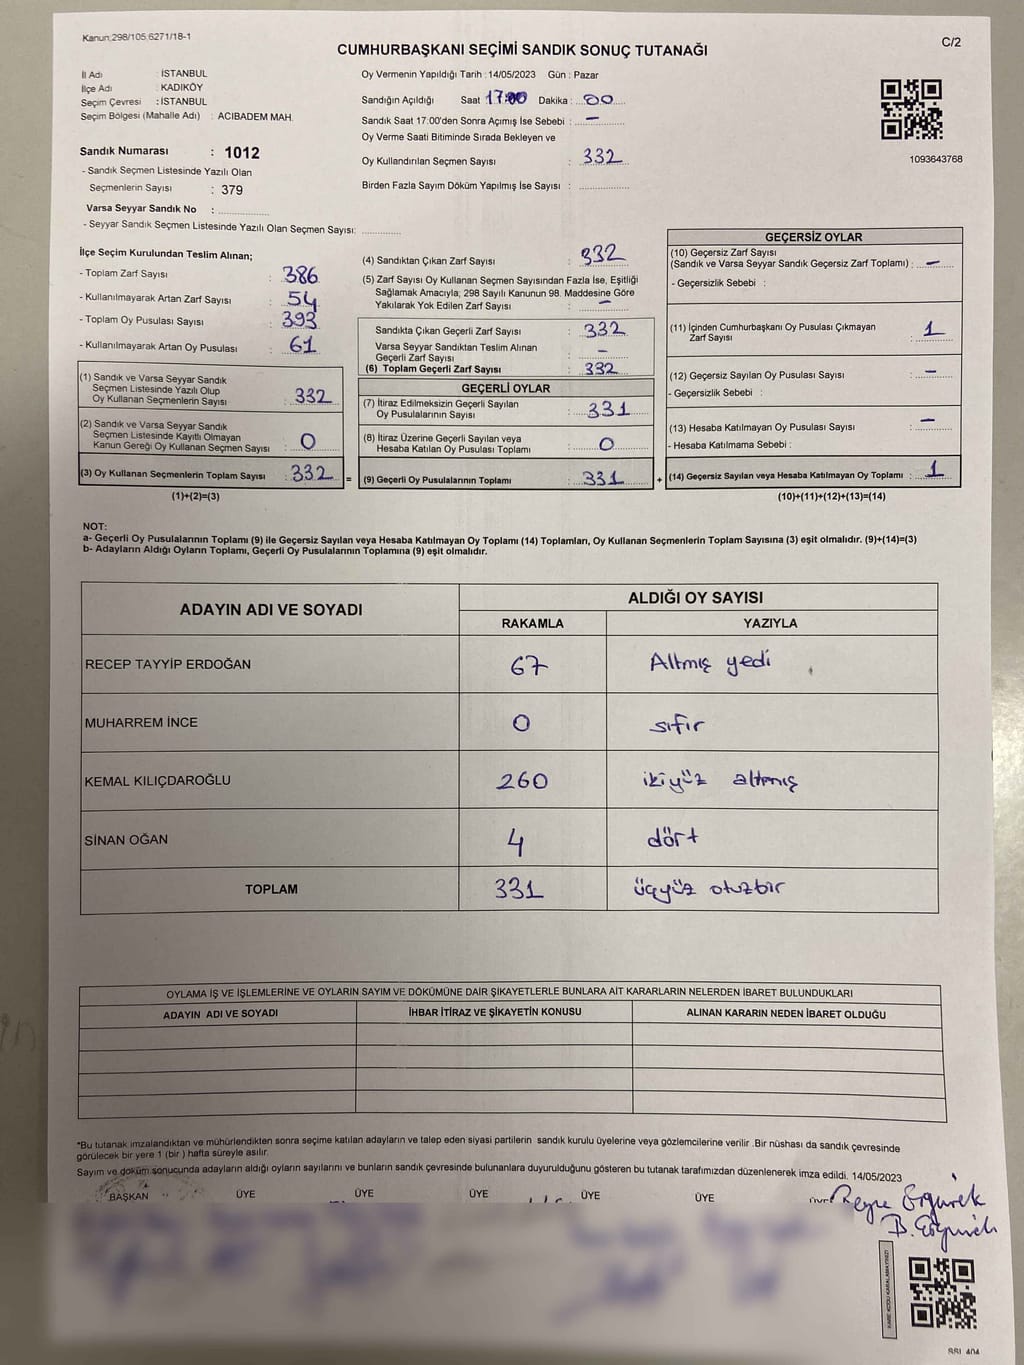 Kanun:298/105;6271/18-1
C/2
CUMHURBAŞKANI SEÇİMİ SANDIK SONUÇ TUTANAĞI
İl Adı : İSTANBUL
İlçe Adı : KADIKÖY
Seçim Çevresi : İSTANBUL
Seçim Bölgesi (Mahalle Adı) : ACIBADEM MAH.
Sandık Numarası : 1012
- Sandık Seçmen Listesinde Yazılı Olan
Seçmenlerin Sayısı : 379
Varsa Seyyar Sandık No :
- Seyyar Sandık Seçmen Listesinde Yazılı Olan Seçmen Sayısı:
Oy Vermenin Yapıldığı Tarih : 14/05/2023 Gün : Pazar
Sandığın Açıldığı Saat 17:00 Dakika : 00
Sandık Saat 17:00'den Sonra Açımış İse Sebebi : –
Oy Verme Saati Bitiminde Sırada Bekleyen ve
Oy Kullandırılan Seçmen Sayısı : 332
Birden Fazla Sayım Döküm Yapılmış İse Sayısı :
1093643768
İlçe Seçim Kurulundan Teslim Alınan;
- Toplam Zarf Sayısı : 386
- Kullanılmayarak Artan Zarf Sayısı : 54
- Toplam Oy Pusulası Sayısı : 393
- Kullanılmayarak Artan Oy Pusulası : 61
(1) Sandık ve Varsa Seyyar Sandık
Seçmen Listesinde Yazılı Olup
Oy Kullanan Seçmenlerin Sayısı : 332
(2) Sandık ve Varsa Seyyar Sandık
Seçmen Listesinde Kayıtlı Olmayan
Kanun Gereği Oy Kullanan Seçmen Sayısı : 0
(3) Oy Kullanan Seçmenlerin Toplam Sayısı : 332 =
(1)+(2)=(3)
(4) Sandıktan Çıkan Zarf Sayısı : 332
(5) Zarf Sayısı Oy Kullanan Seçmen Sayısından Fazla İse, Eşitliği
Sağlamak Amacıyla; 298 Sayılı Kanunun 98. Maddesine Göre
Yakılarak Yok Edilen Zarf Sayısı : –
Sandıkta Çıkan Geçerli Zarf Sayısı : 332
Varsa Seyyar Sandıktan Teslim Alınan
Geçerli Zarf Sayısı : –
(6) Toplam Geçerli Zarf Sayısı : 332
GEÇERLİ OYLAR
(7) İtiraz Edilmeksizin Geçerli Sayılan
Oy Pusulalarının Sayısı : 331
(8) İtiraz Üzerine Geçerli Sayılan veya
Hesaba Katılan Oy Pusulası Toplamı : 0
(9) Geçerli Oy Pusulalarının Toplamı : 331 +
GEÇERSİZ OYLAR
(10) Geçersiz Zarf Sayısı
(Sandık ve Varsa Seyyar Sandık Geçersiz Zarf Toplamı) : –
- Geçersizlik Sebebi :
(11) İçinden Cumhurbaşkanı Oy Pusulası Çıkmayan
Zarf Sayısı : 1
(12) Geçersiz Sayılan Oy Pusulası Sayısı : –
- Geçersizlik Sebebi :
(13) Hesaba Katılmayan Oy Pusulası Sayısı : –
- Hesaba Katılmama Sebebi :
(14) Geçersiz Sayılan veya Hesaba Katılmayan Oy Toplamı : 1
(10)+(11)+(12)+(13)=(14)
NOT:
a- Geçerli Oy Pusulalarının Toplamı (9) ile Geçersiz Sayılan veya Hesaba Katılmayan Oy Toplamı (14) Toplamları, Oy Kullanan Seçmenlerin Toplam Sayısına (3) eşit olmalıdır. (9)+(14)=(3)
b- Adayların Aldığı Oyların Toplamı, Geçerli Oy Pusulalarının Toplamına (9) eşit olmalıdır.
ADAYIN ADI VE SOYADI
ALDIĞI OY SAYISI
RAKAMLA YAZIYLA
RECEP TAYYİP ERDOĞAN 67 Altmış yedi
MUHARREM İNCE 0 sıfır
KEMAL KILIÇDAROĞLU 260 ikiyüz altmış
SİNAN OĞAN 4 dört
TOPLAM 331 üçyüz otuzbir
OYLAMA İŞ VE İŞLEMLERİNE VE OYLARIN SAYIM VE DÖKÜMÜNE DAİR ŞİKAYETLERLE BUNLARA AİT KARARLARIN NELERDEN İBARET BULUNDUKLARI
ADAYIN ADI VE SOYADI İHBAR İTİRAZ VE ŞİKAYETİN KONUSU ALINAN KARARIN NEDEN İBARET OLDUĞU
*Bu tutanak imzalandıktan ve mühürlendikten sonra seçime katılan adayların ve talep eden siyasi partilerin sandık kurulu üyelerine veya gözlemcilerine verilir .Bir nüshası da sandık çevresinde
görülecek bir yere 1 (bir ) hafta süreyle asılır.
Sayım ve döküm sonucunda adayların aldığı oyların sayılarını ve bunların sandık çevresinde bulunanlara duyurulduğunu gösteren bu tutanak tarafımızdan düzenlenerek imza edildi. 14/05/2023
BAŞKAN ÜYE ÜYE ÜYE ÜYE ÜYE